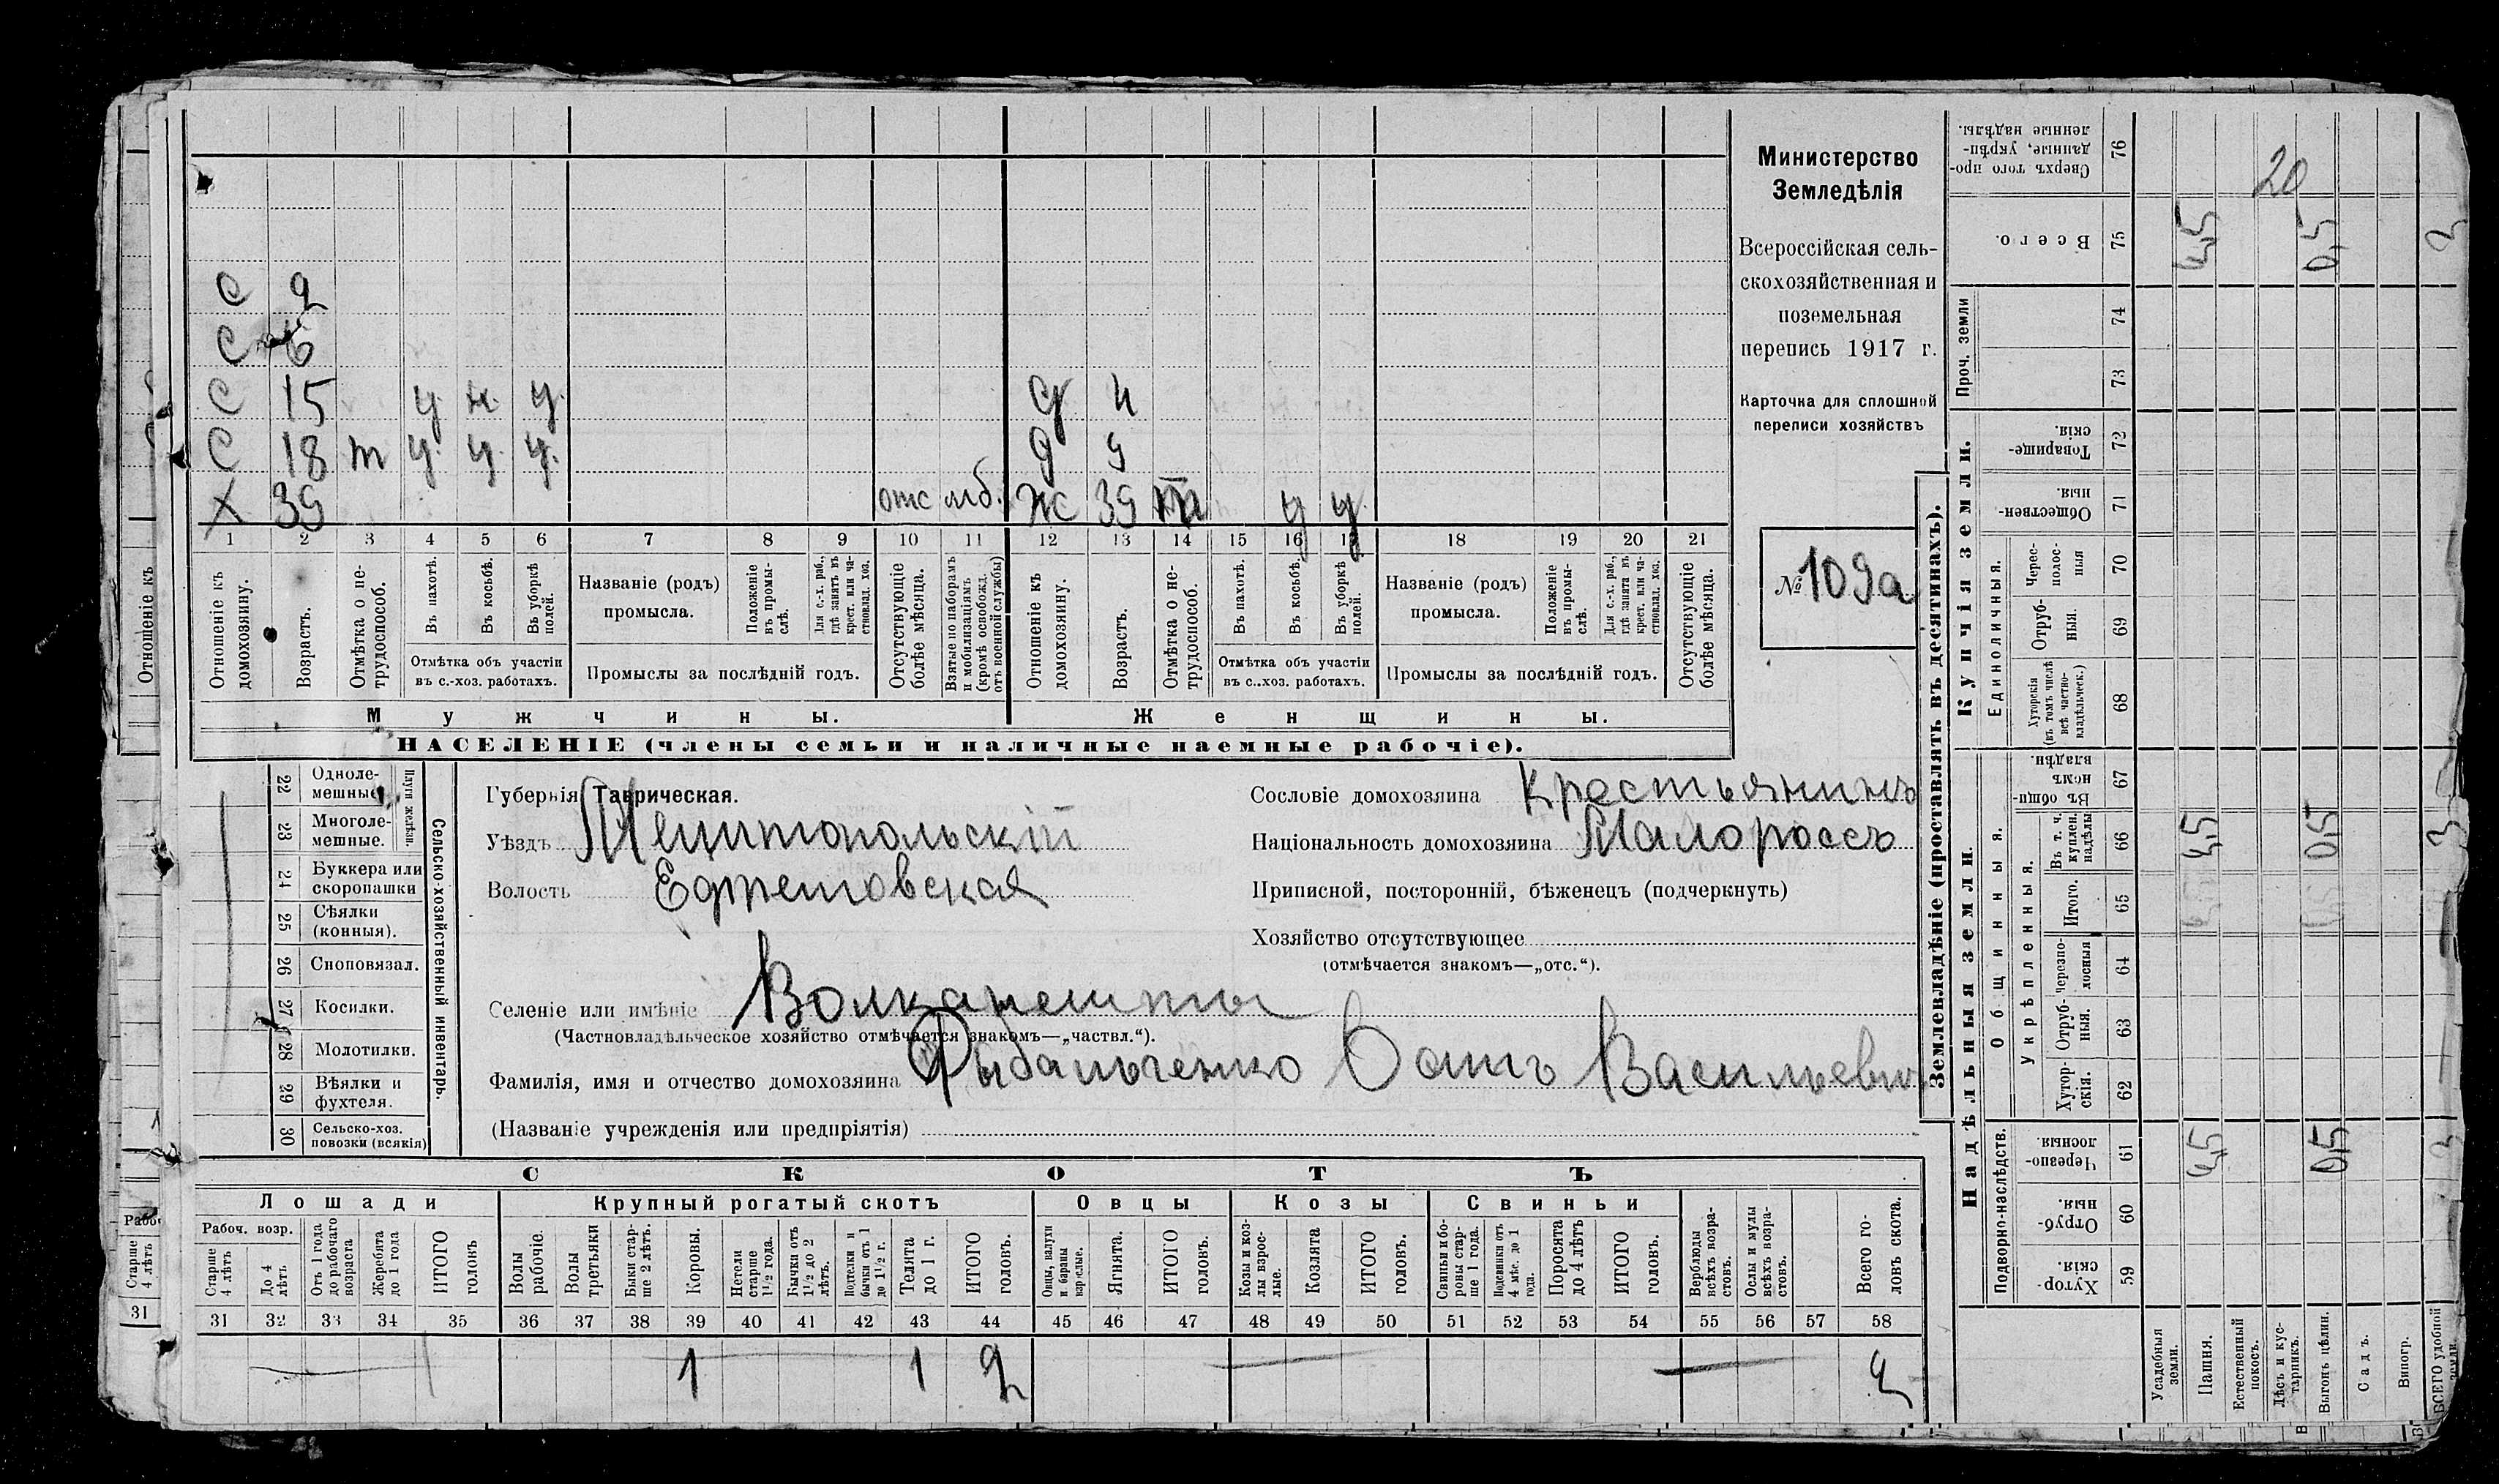 Министерство
Земледѣлія
Всероссійская сель-
скохозяйственная и
поземельная
перепись 1917 г.
Карточка для сплошной
переписи хозяйствъ
№ 109а
С 2
С 6
С 15 у. н. у.
С 18 т у. у. у.
Х 39 отс мб.
д 4
д 9
ж 39 т у у.
1 2 3 4 5 6 7 8 9 10 11 12 13 14 15 16 17 18 19 20 21
Отношеніе къ домохозяину.
Возрастъ.
Отмѣтка о не-трудоспособ.
Въ пахотѣ.
Въ косьбѣ.
Въ уборкѣ полей.
Отмѣтка объ участіи
въ с.-хоз. работахъ.
Названіе (родъ)
промысла.
Положеніе въ промы-слѣ.
Для с.-х. раб., гдѣ занятъ въ крест. или ча-стновлад. хоз.
Промыслы за послѣдній годъ.
Отсутствующіе болѣе мѣсяца.
Взятые по наборамъ и мобилизаціямъ (кромѣ освобожд. отъ военной службы)
Отношеніе къ домохозяину.
Возрастъ.
Отмѣтка о не-трудоспособ.
Въ пахотѣ.
Въ косьбѣ.
Въ уборкѣ полей.
Отмѣтка объ участіи
въ с..хоз. работахъ.
Названіе (родъ)
промысла.
Положеніе въ промы-слѣ.
Для с.-х. раб., гдѣ занята въ крест. или ча-стновлад. хоз.
Промыслы за послѣдній годъ.
Отсутствующіе болѣе мѣсяца.
Мужчины. Женщины.
НАСЕЛЕНІЕ (члены семьи и наличные наемные рабочіе).
Сельско-хозяйственный инвентарь.
Плуги желѣзн.
22 Одноле-мешные
23 Многоле-мешные.
24 Буккера или скоропашки
25 Сѣялки (конныя).
26 Сноповязал.
27 Косилки.
28 Молотилки.
29 Вѣялки и фухтеля.
30 Сельско-хоз. повозки (всякія)
Губернія Таврическая.
Уѣздъ Мелитопольскій
Волость Ефремовская
Селеніе или имѣніе Волканешты
(Частновладѣльческое хозяйство отмѣчается знакомъ—„частвл.“).
Фамилія, имя и отчество домохозяина Рыбальченко Васильевич
(Названіе учрежденія или предпріятія)
Сословіе домохозяина Крестьянинъ
Національность домохозяина Малороссъ
Приписной, посторонній, бѣженецъ (подчеркнуть)
Хозяйство отсутствующее
(отмѣчается знакомъ—„отс.“).
СКОТЪ
Лошади Крупный рогатый скотъ Овцы Козы Свиньи
Рабоч. возр.
Старше 4 лѣтъ
До 4 лѣтъ
Отъ 1 года до рабочаго возраста
Жеребята до 1 года
ИТОГО головъ
Волы рабочіе.
Волы третьяки
Быки стар-ше 2 лѣтъ.
Коровы.
Нетели старше 1½ года.
Бычки отъ 1½ до 2 лѣтъ.
Подтелки и бычки отъ 1 до 1½ г.
Телята до 1 г.
ИТОГО головъ.
Овцы, валухи и бараны взрослые.
Ягнята.
ИТОГО головъ.
Козы и коз-лы взрос-лые.
Козлята
ИТОГО головъ.
Свиньи и бо-ровы стар-ше 1 года.
Подсвинки отъ 4 мѣс. до 1 года.
Поросята до 4 лѣтъ
ИТОГО головъ.
Верблюды всѣхъ возра-стовъ.
Ослы и мулы всѣхъ возра-стовъ.
Всего го-ловъ скота.
31 32 33 34 35 36 37 38 39 40 41 42 43 44 45 46 47 48 49 50 51 52 53 54 55 56 57 58
1 1 2 2
Землевладѣніе (проставлять въ десятинахъ).
Надѣльныя земли. Купчія земли. Проч. земли
Подворно-наслѣдств. Общинныя. Укрѣпленныя. Единоличныя.
59 Хутор-скія.
60 Отруб-ныя.
61 Черезпо-лосныя.
62 Хутор-скія.
63 Отруб-ныя.
64 Черезпо-лосныя
65 Итого.
66 Въ т. ч. куплен. надѣлы
67 Въ общин-номъ владѣн.
68 Хуторскія (въ томъ числѣ всѣ частно-владѣльческ.)
69 Отруб-ныя.
70 Черес-полос-ныя
71 Обществен-ныя.
72 Товарище-скія.
73
74
75 Всего.
76 Сверхъ того про-данные, укрѣп-ленные надѣлы.
Усадебныя земли.
Пашня. 4,5 4,5 4,5 4,5
Естественный покосъ.
Лѣсъ и кус-тарникъ.
20
Выгонъ цѣлин. 0,5 0,5 0,5 0,5
Садъ.
Виногр.
ВСЕГО удобной земли.
Отношеніе къ
Старше 4 лѣтъ
31